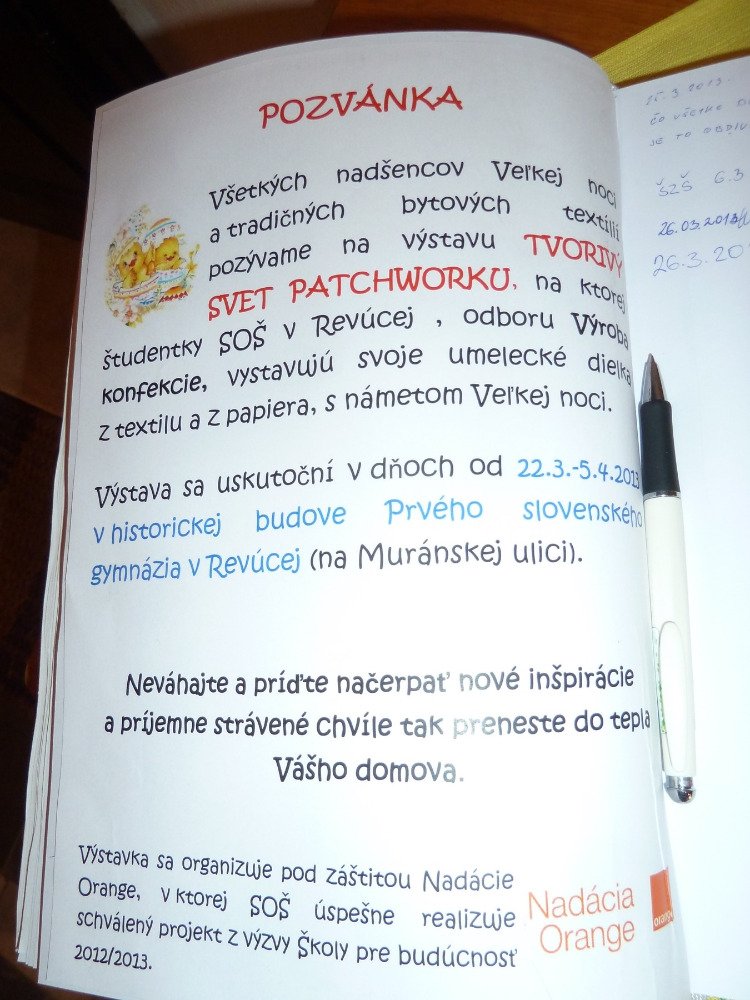 POZVÁNKA
Všetkých nadšencov Veľkej noci
a tradičných bytových textílií
pozývame na výstavu TVORIVÝ
SVET PATCHWORKU, na ktorej
študentky SOŠ v Revúcej , odboru Výroba
konfekcie, vystavujú svoje umelecké dielka
z textilu a z papiera, s námetom Veľkej noci.
Výstava sa uskutoční v dňoch od 22.3.-5.4.2013
v historickej budove Prvého slovenského
gymnázia v Revúcej (na Muránskej ulici).
Neváhajte a príďte načerpať nové inšpirácie
a príjemne strávené chvíle tak preneste do tepla
Vášho domova.
Výstavka sa organizuje pod záštitou Nadácie
Orange, v ktorej SOŠ úspešne realizuje
schválený projekt z výzvy Školy pre budúcnosť
2012/2013.
Nadácia
Orange
orange
25.3.2013.
ČO VŠETKO
JE TO
ŠZŠ 6.3
26.03.2013
26.3.20